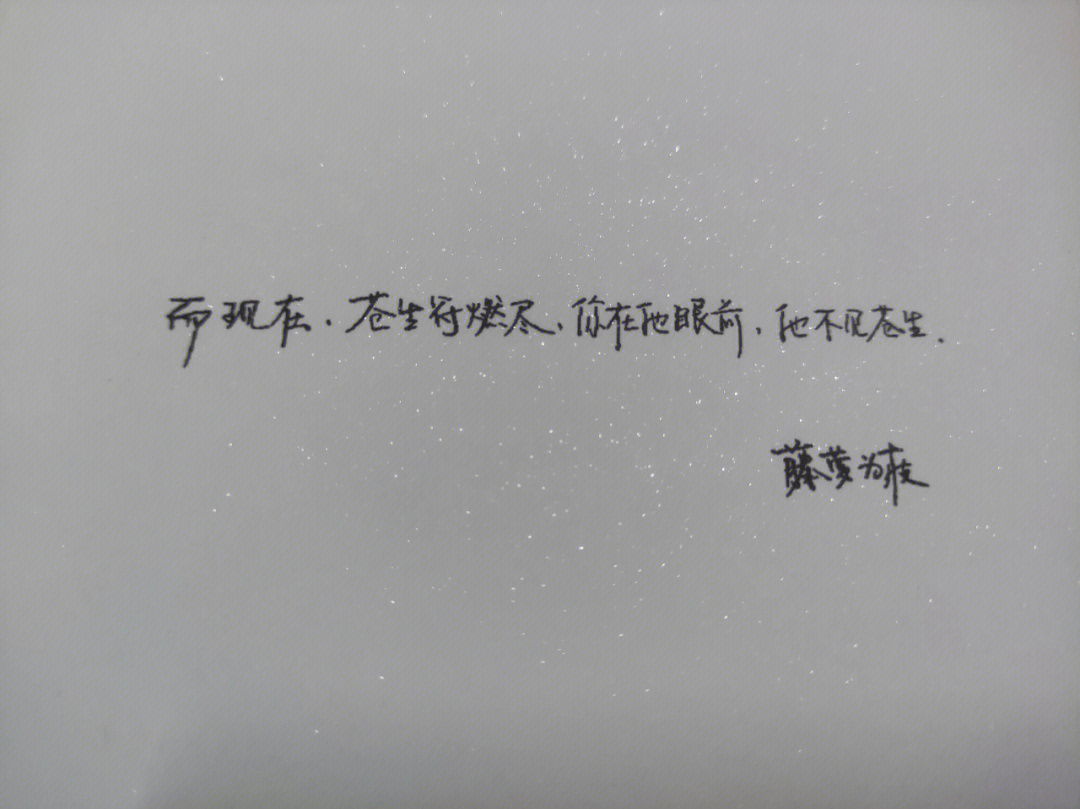 而现在.苍生符燃尽.你在他眼前.他不见苍生.
藤萝为枝